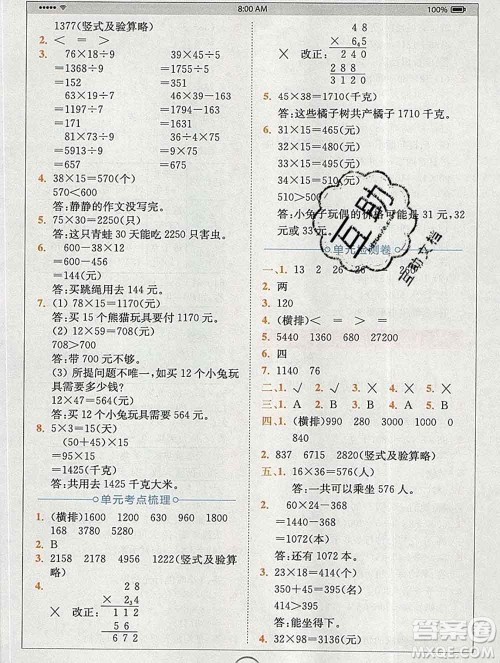 8:00 AM
100%
1377(竖式及验算略)
2. < = >
3. 76×18÷9 39×45÷5
=1368÷9 =1755÷5
=152 =351
63×29-18 46×39-163
=1827-18 =1794-163
=1809 =1631
73×81÷9 17×18÷9
=5913÷9 =306÷9
=657 =34
4. 38×15=570(个)
570<600
答:静静的作文没写完。
5. 75×30=2250(只)
答:这只青蛙30天能吃2250只害虫。
6. 600-38×12
=600-456
=144(元)
答:买跳绳用了144元。
7. (1) 78×15=1170(元)
答:买15个熊猫玩具要付1170元。
(2) 78×10=780(元)
780>700
答:带700元不够。
(3) 所提问题不唯一,如买12个小兔玩
具需要多少钱?
12×47=564(元)
答:买12个小兔玩具要付564元。
8. 5×3=15(天)
(50+45)×15
=95×15
=1425(千克)
答:共用去1425千克大米。
单元考点梳理
1. (横排)1600 1200 630 960 1800
168 9380 5280
2. B
3. 2158 2178 4956 1222(竖式及验算
略)
4. 2 8
× 2 4
× 改正: 1 1 2
5 6
6 7 2
4 8
× 6 5
× 改正: 2 4 0
2 8 8
3 1 2 0
5. 45×38=1710(千克)
答:这些橘子树共产橘子1710千克。
6. 31×15=465(元)
32×15=480(元)
33×15=495(元)
34×15=510(元)
510>500
答:小兔子玩偶的价格可能是31元,32
元,33元。
单元检测卷
一、1. 13 2 26 26
2. 两
3. 120
4. (横排)< = > =
5. 5440 1360 680 2720
6. 四
7. 1140 76
二、1. √ 2. √ 3. × 4. ×
三、1. A 2. B 3. A 4. B
四、1. (横排)1000 1280 330 840
990 1320
2. 837 6715 2820(竖式及验算略)
五、1. 16×36=576(人)
答:一共可以乘坐576人。
2. 60×24-368
=1440-368
=1072(本)
答:还有1072本。
3. 23×18=414(个)
350+45=395(个)
414>395
答:能坐得下。
4. 32×98=3136(元)
互助
互助文档
答案圈
MXQE.COM